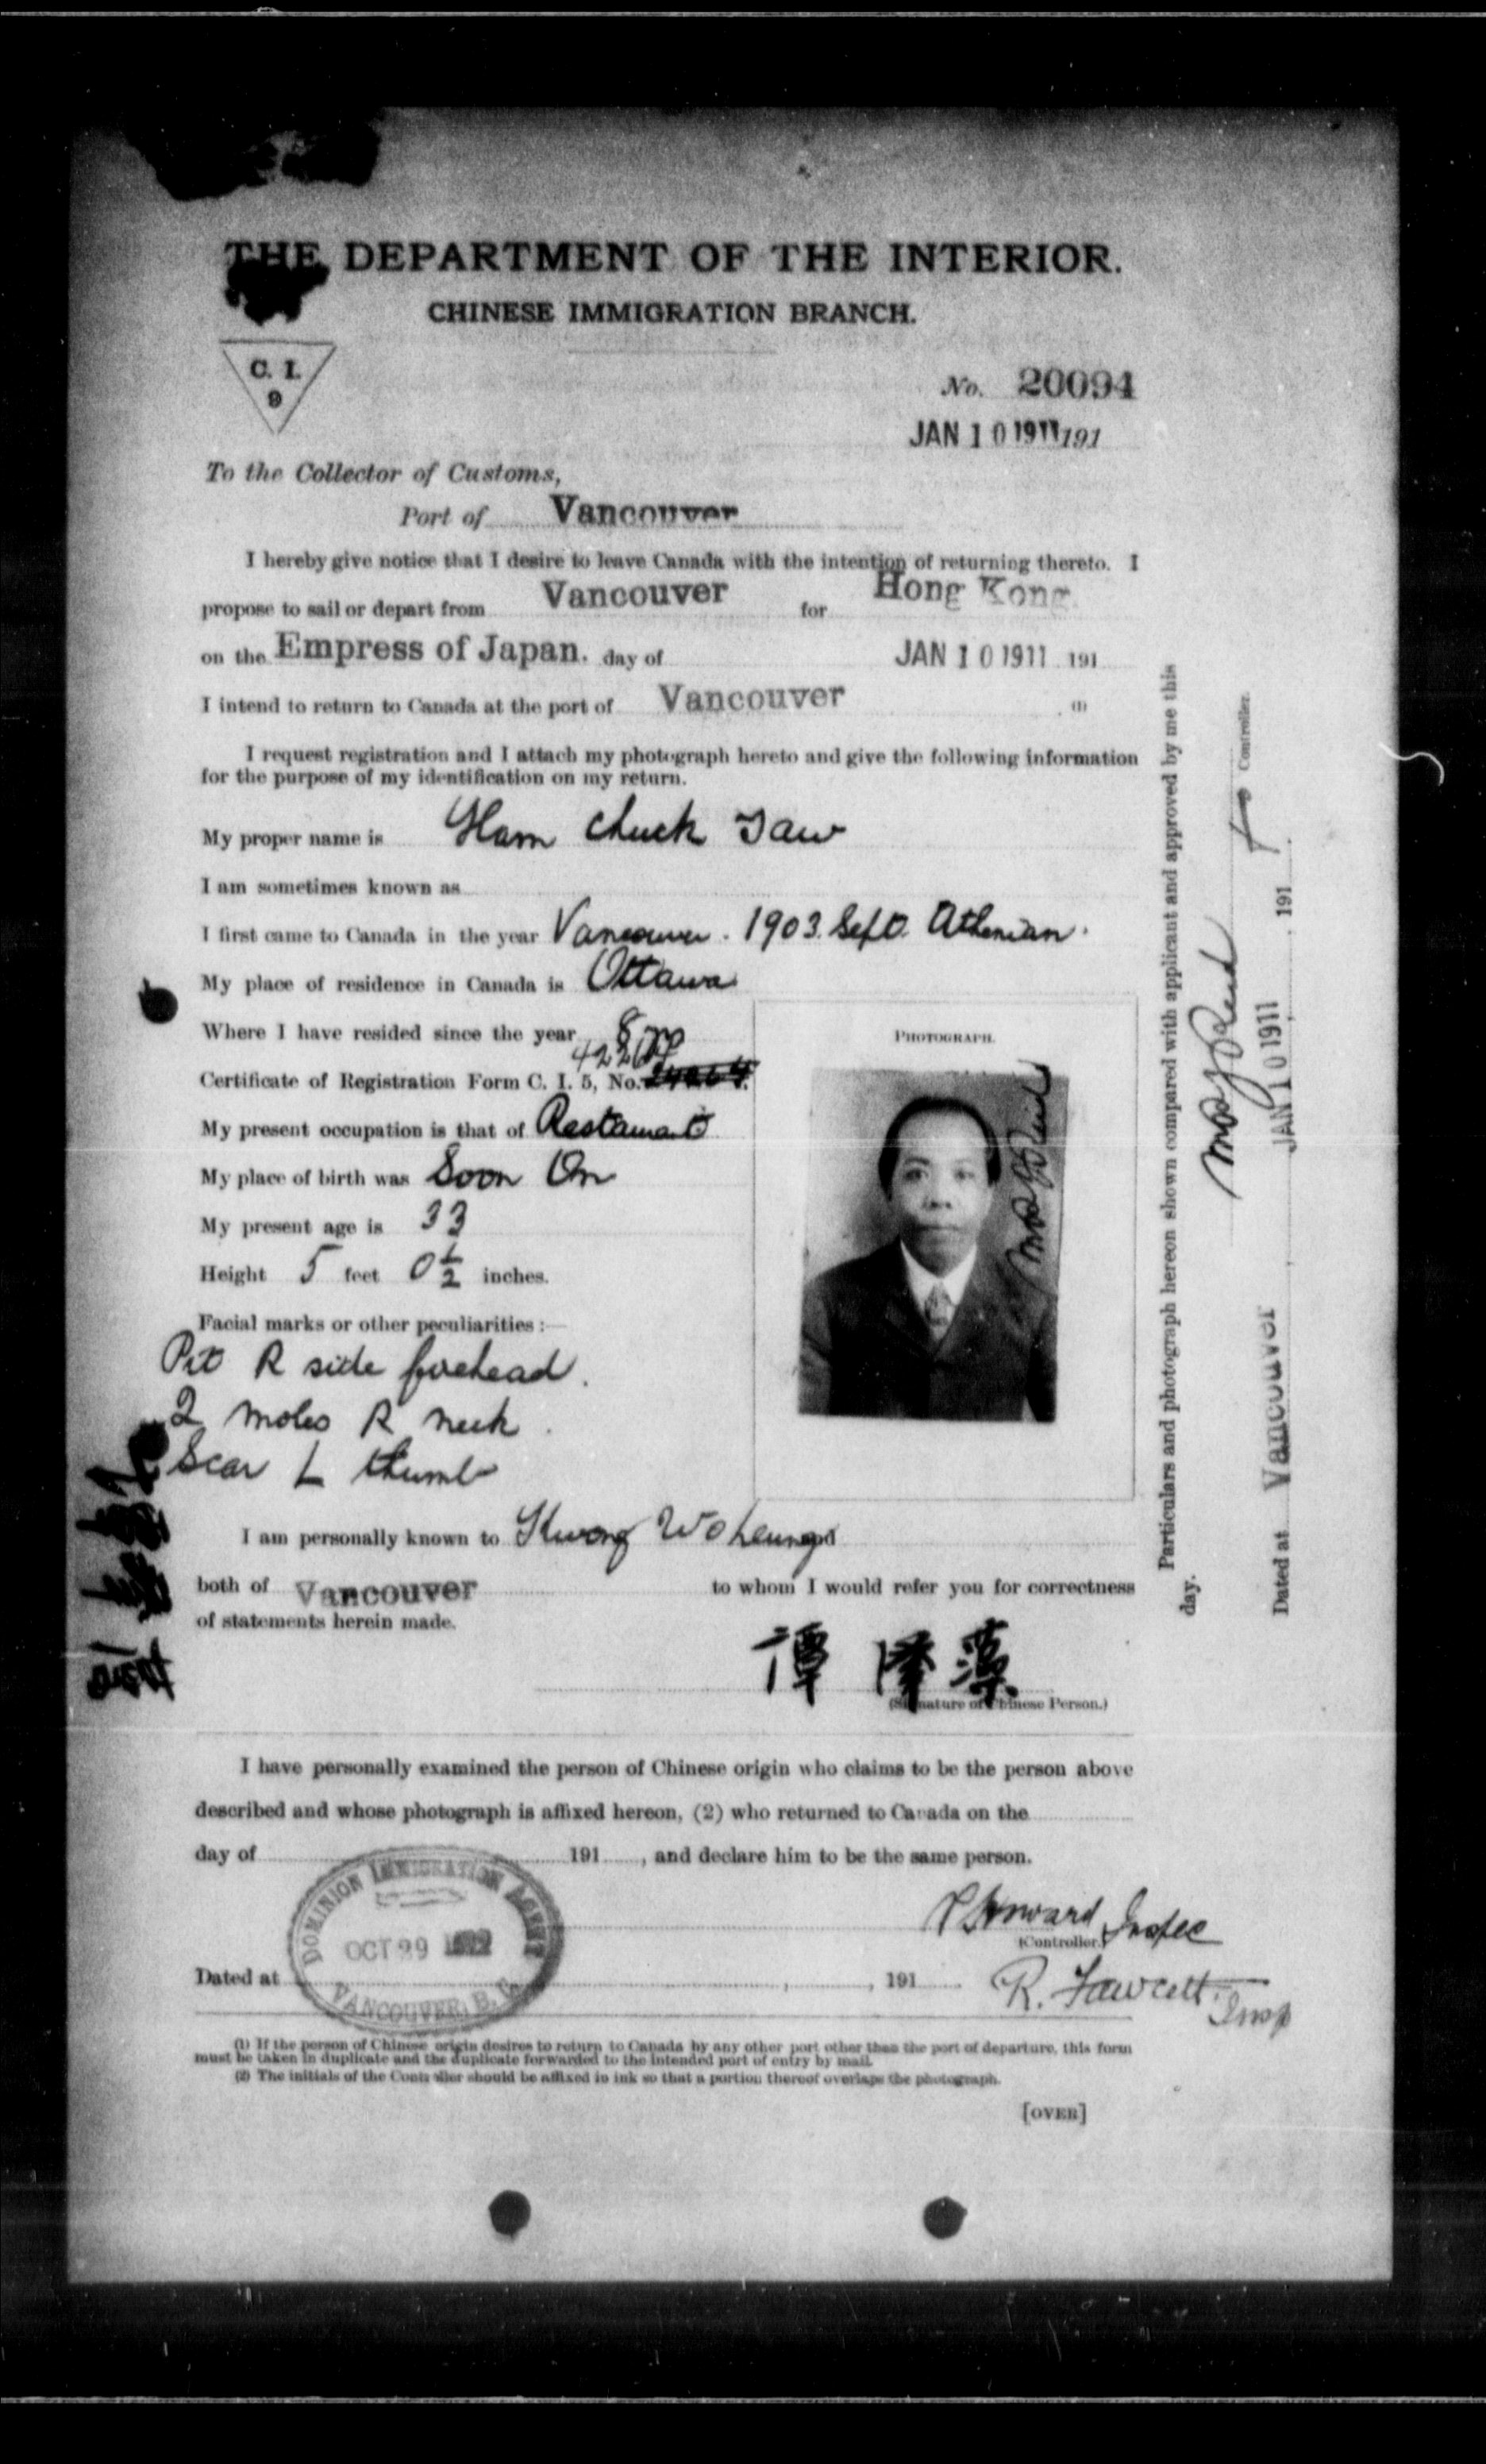 THE DEPARTMENT OF THE INTERIOR.
CHINESE IMMIGRATION BRANCH.
C. I.
9
No. 20094
JAN 10 1911 191
To the Collector of Customs,
Port of Vancouver
I hereby give notice that I desire to leave Canada with the intention of returning thereto. I
propose to sail or depart from Vancouver for Hong Kong
on the Empress of Japan. day of JAN 10 1911 191
I intend to return to Canada at the port of Vancouver (1)
I request registration and I attach my photograph hereto and give the following information
for the purpose of my identification on my return.
My proper name is Ham Chuck Jaw
I am sometimes known as
I first came to Canada in the year Vancouver. 1903 Sept. Athenian.
My place of residence in Canada is Ottawa
Where I have resided since the year 8
Certificate of Registration Form C. I. 5, No.
My present occupation is that of Restaurant
My place of birth was Soon On
My present age is 33
Height 5 feet 0½ inches.
Facial marks or other peculiarities :—
Pit R side forehead.
2 moles R neck.
Scar L thumb
PHOTOGRAPH.
I am personally known to Kwong Wo Leung
both of Vancouver to whom I would refer you for correctness
of statements herein made.
譚 澤 藻
(Signature of Chinese Person.)
I have personally examined the person of Chinese origin who claims to be the person above
described and whose photograph is affixed hereon, (2) who returned to Canada on the
day of 191 , and declare him to be the same person.
DOMINION IMMIGRATION AGENT
OCT 29 1912
VANCOUVER, B. C.
Howard Inspec
(Controller.)
Dated at , , 191
R. Fawcett Insp
(1) If the person of Chinese origin desires to return to Canada by any other port other than the port of departure, this form
must be taken in duplicate and the duplicate forwarded to the intended port of entry by mail.
(2) The initials of the Controller should be affixed in ink so that a portion thereof overlaps the photograph.
[OVER]
Particulars and photograph hereon shown compared with applicant and approved by me this
day.
Controller.
Dated at Vancouver JAN 10 1911 191